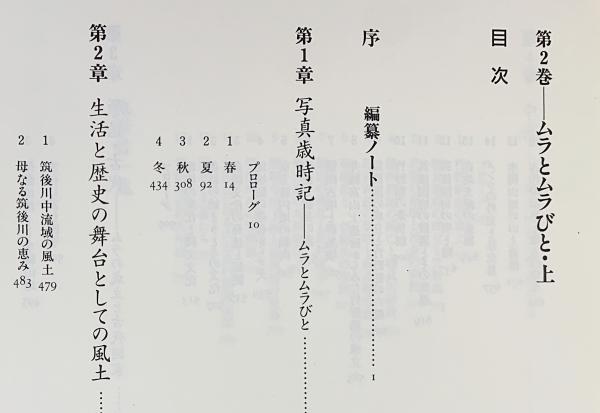 第2巻――ムラとムラびと・上
目次
序 編纂ノート……………………………1
第1章 写真歳時記――ムラとムラびと…………
プロローグ 10
1 春 14
2 夏 92
3 秋 308
4 冬 434
第2章 生活と歴史の舞台としての風土……
1 筑後川中流域の風土 479
2 母なる筑後川の恵み 483